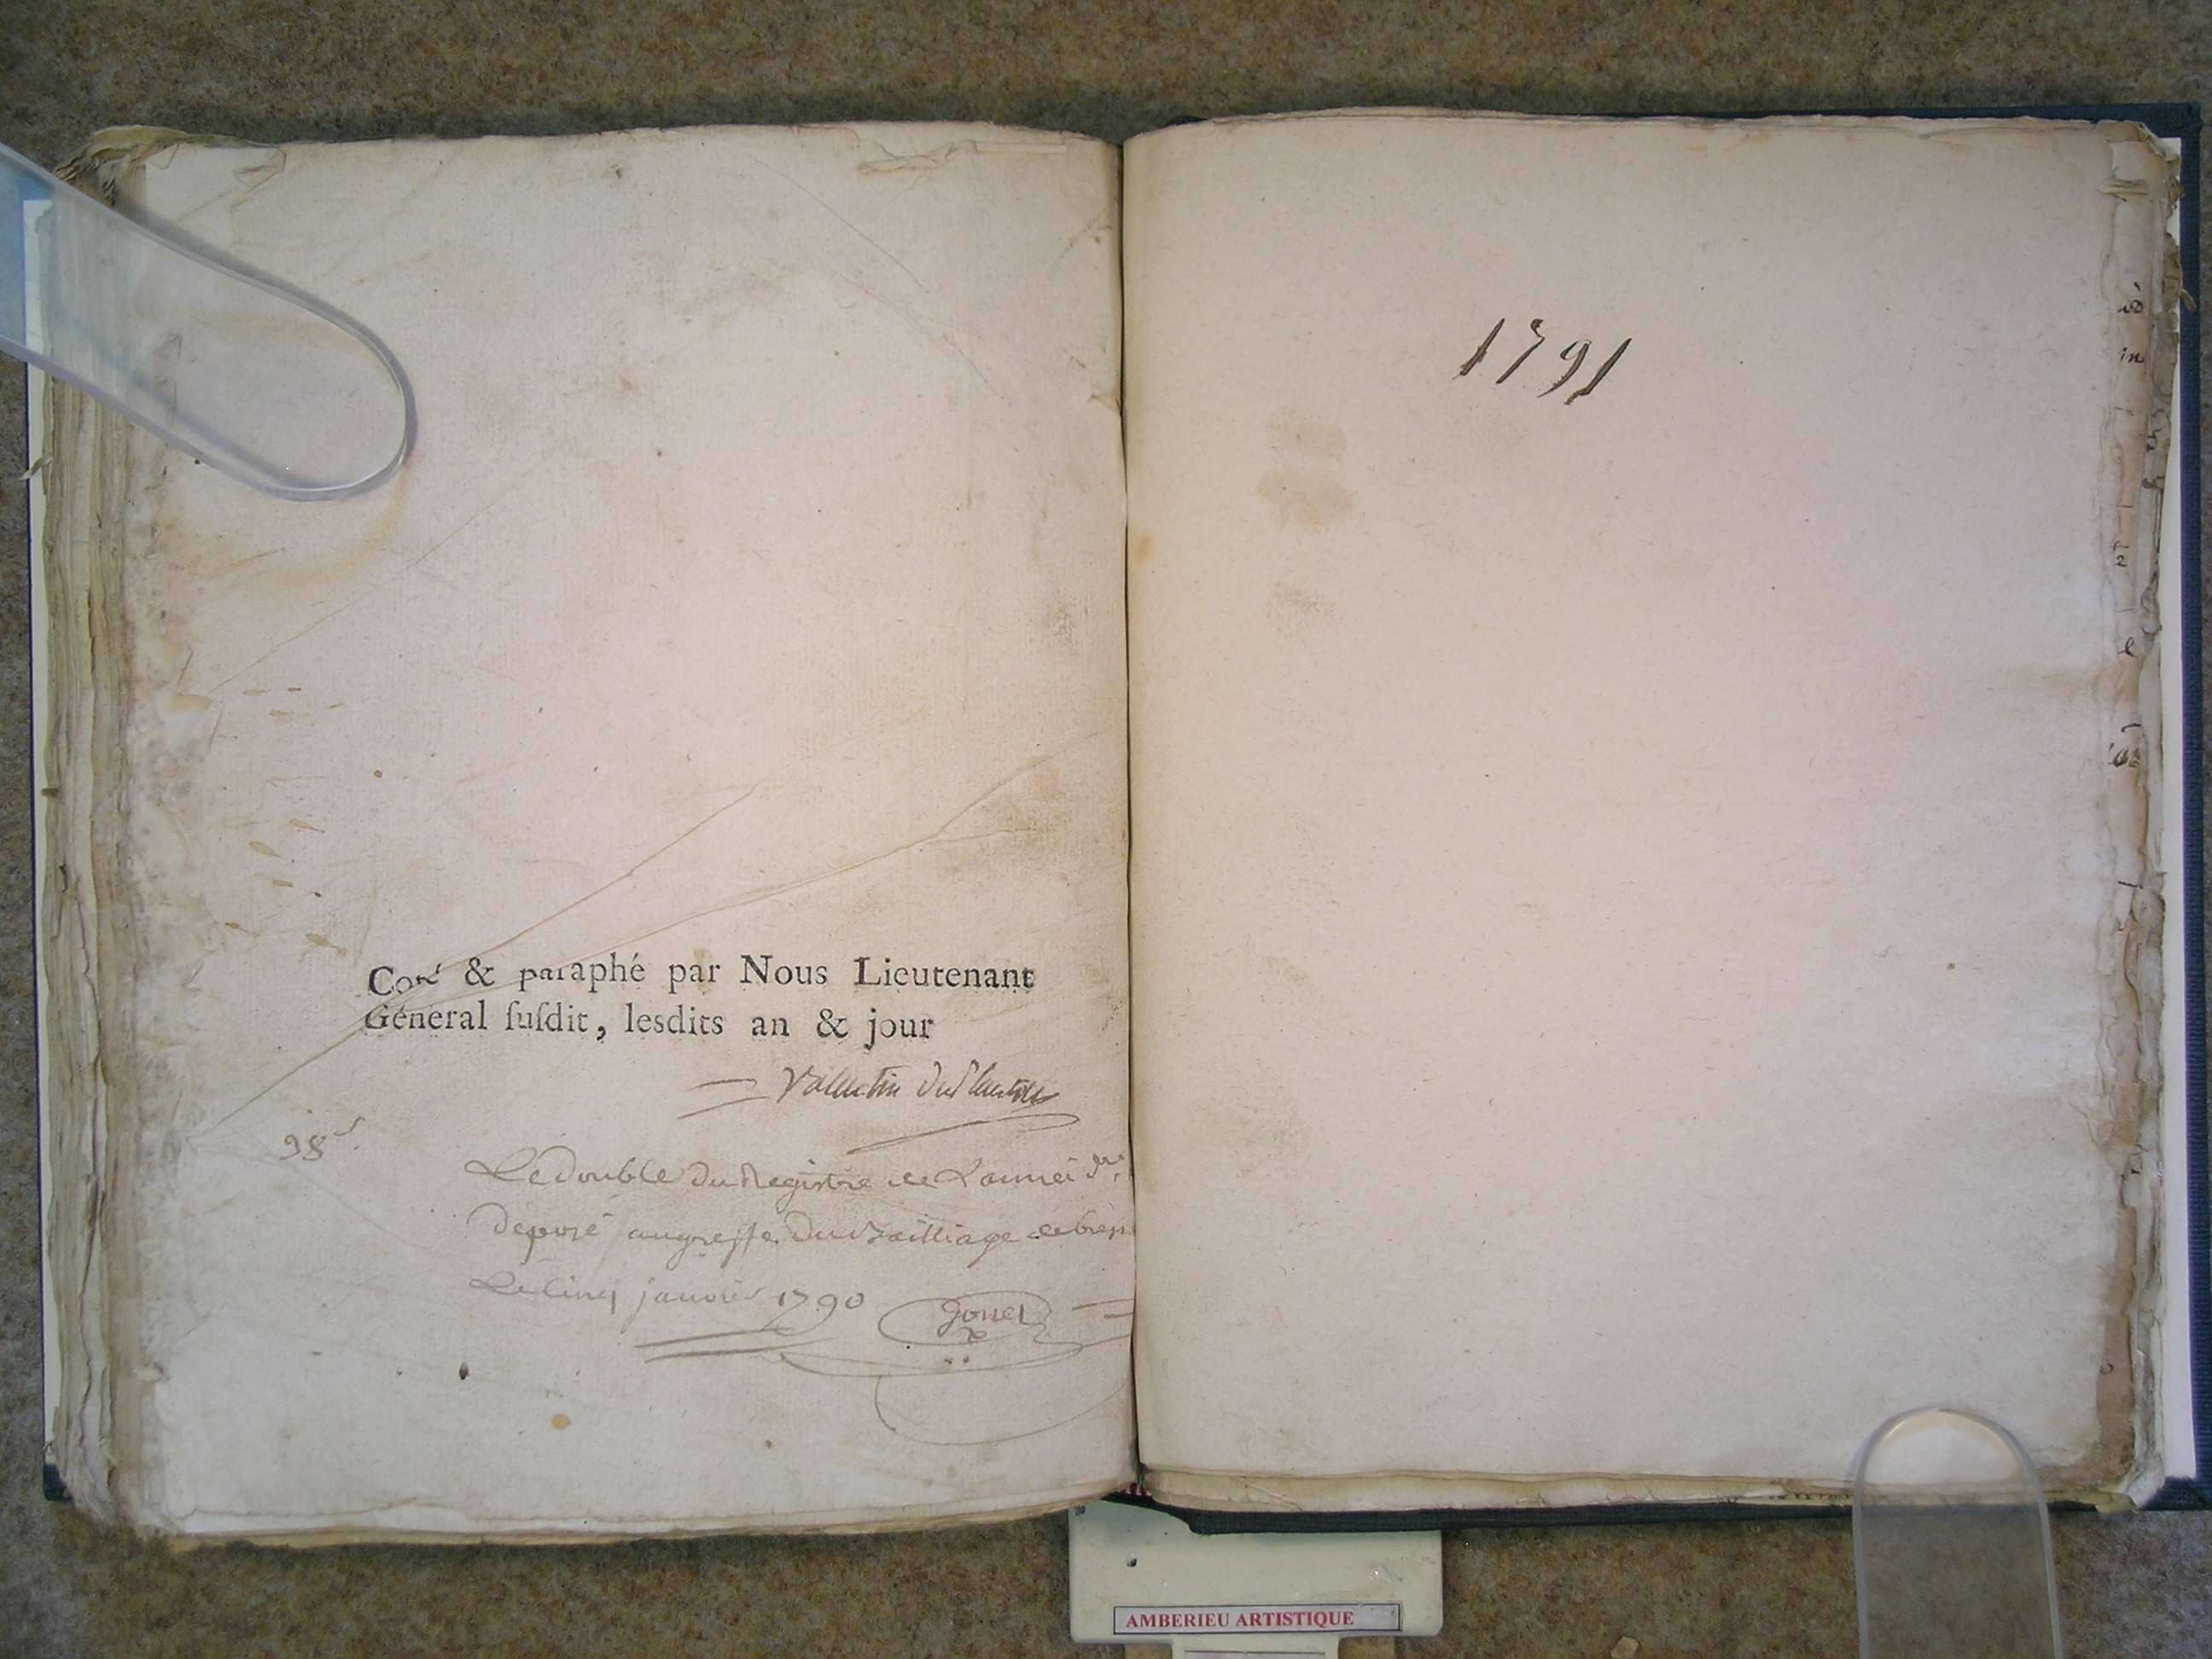 Coté & paraphé par Nous Lieutenant
Général ſuſdit, lesdits an & jour
Valentin Duplantier
98
Le double du Registre de L'année
déposé au greffe du Bailliage de bres
Le Cinq janvier 1790
1791
in
AMBERIEU ARTISTIQUE